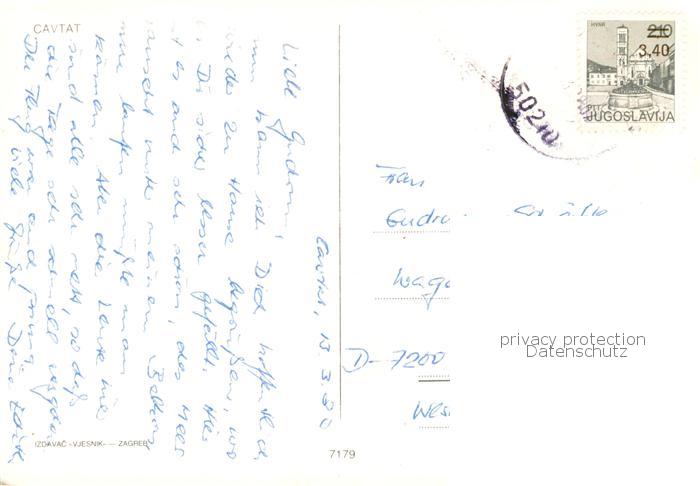 CAVTAT
Cavtat, 13.3.80
Liebe Gudrun,
nun kann ich Dich hoffentlich
wieder zu Hause begrüßen, wo
es Dir sicher besser gefällt. Hier
ist es auch sehr schön, das Meer
rauscht unter meinem Balkon
nur laufen müßte man
können. Aber die Leute hier
sind alle sehr nett, so daß
die Tage sehr schnell vergehen
Der Flug war auch prima
Viele Grüße Deine Edith
IZDAVAČ »VJESNIK« — ZAGREB
7179
HVAR
210
3,40
PTT JUGOSLAVIJA
50210
Frau
Gudru
D-7200
privacy protection
Datenschutz